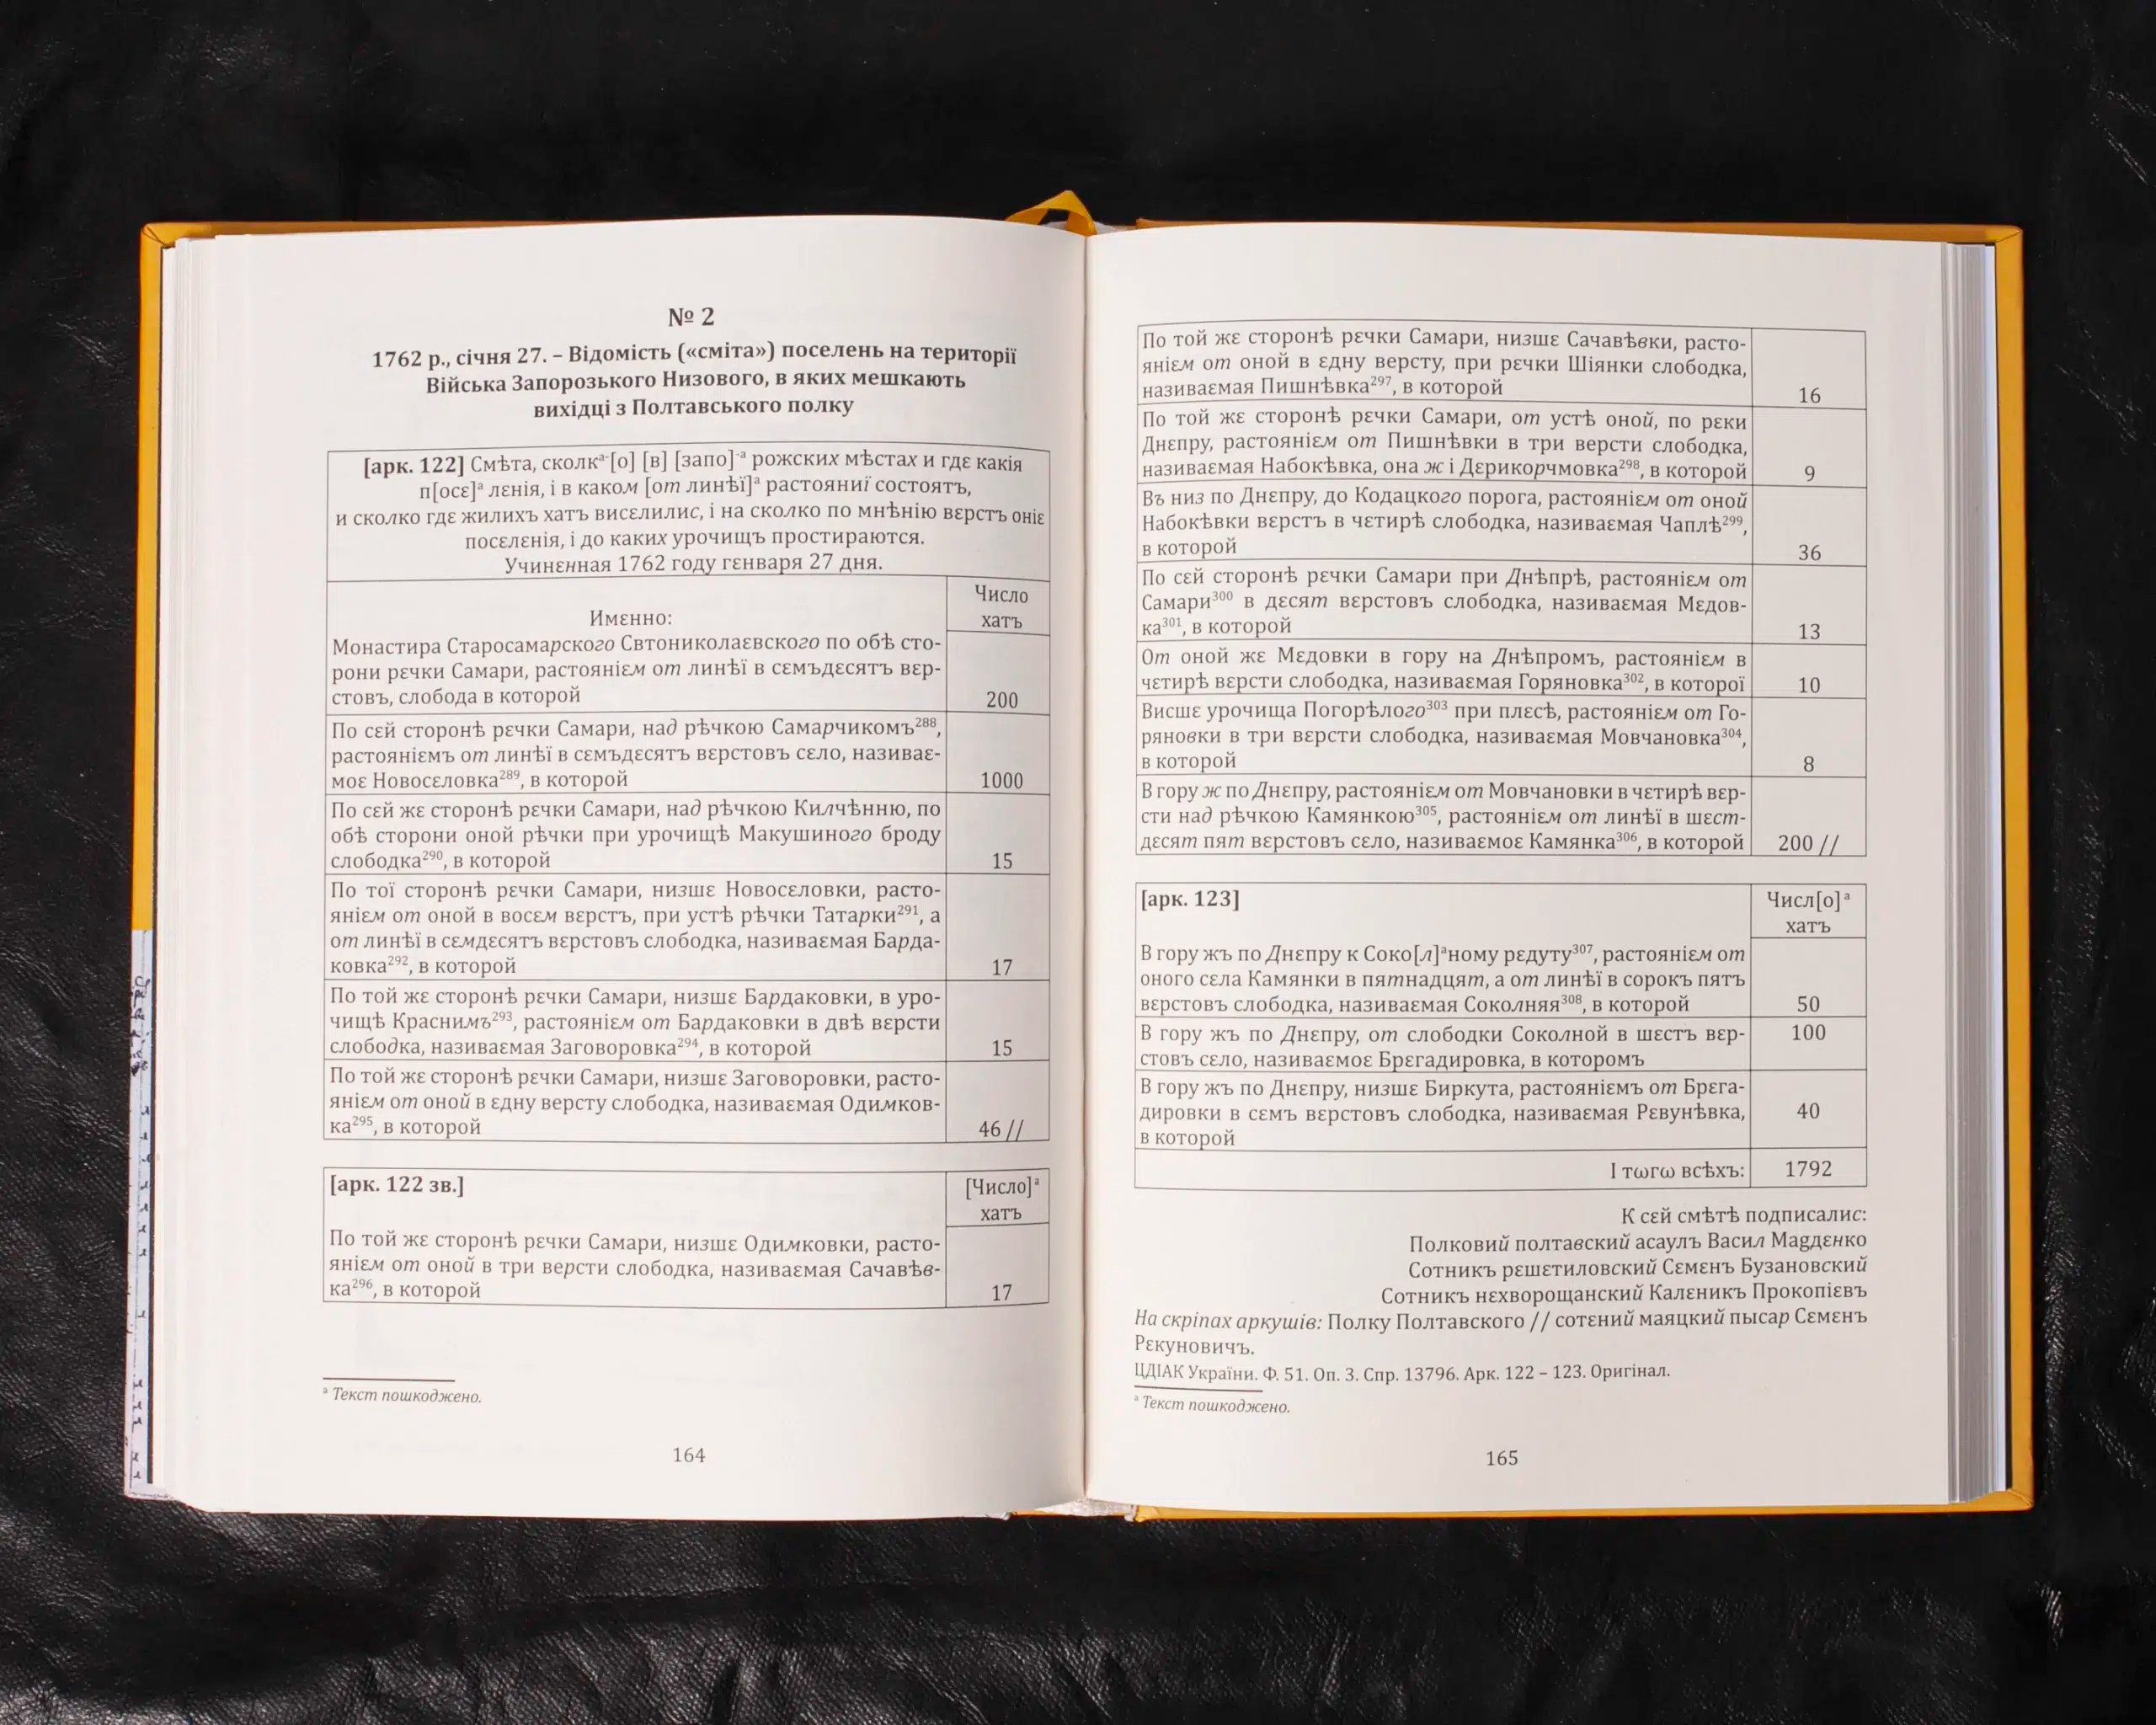 № 2
1762 р., січня 27. – Відомість («сміта») поселень на території
Війська Запорозького Низового, в яких мешкають
вихідці з Полтавського полку
[арк. 122] Смѣта, сколкᵃ⁻[о] [в] [запо]⁻ᵃ рожских мѣстах и гдє какія
п[осє]ᵃ лєнія, і в каком [от линѣї]ᵃ растояниї состоятъ,
и сколко гдє жилихъ хатъ висєлилис, і на сколко по мнѣнію вєрстъ оніє
посєлєнія, і до каких урочищъ простираются.
Учинєнная 1762 году гєнваря 27 дня.
Имєнно:
Число
хатъ
Монастира Старосамарского Свтониколаєвского по обѣ сто-
рони рєчки Самари, растоянієм от линѣї в сємъдєсятъ вєр-
стовъ, слобода в которой
200
По сєй сторонѣ рєчки Самари, над рѣчкою Самарчикомъ²⁸⁸,
растояніємъ от линѣї в сємъдєсятъ вєрстовъ сєло, називає-
моє Новосєловка²⁸⁹, в которой
1000
По сєй жє сторонѣ рєчки Самари, над рѣчкою Килчѣнню, по
обѣ сторони оной рѣчки при урочищѣ Макушиного броду
слободка²⁹⁰, в которой
15
По тої сторонѣ рєчки Самари, низшє Новосєловки, расто-
янієм от оной в восєм вєрстъ, при устѣ рѣчки Татарки²⁹¹, а
от линѣї в сємдєсятъ вєрстовъ слободка, називаємая Барда-
ковка²⁹², в которой
17
По той жє сторонѣ рєчки Самари, низшє Бардаковки, в уро-
чищѣ Краснимъ²⁹³, растоянієм от Бардаковки в двѣ вєрсти
слободка, називаємая Заговоровка²⁹⁴, в которой
15
По той жє сторонѣ рєчки Самари, низшє Заговоровки, расто-
янієм от оной в єдну вєрсту слободка, називаємая Одимков-
ка²⁹⁵, в которой
46 //
[арк. 122 зв.]
[Число]ᵃ
хатъ
По той жє сторонѣ рєчки Самари, низшє Одимковки, расто-
янієм от оной в три вєрсти слободка, називаємая Сачавѣв-
ка²⁹⁶, в которой
17
ᵃ Текст пошкоджено.
164
По той жє сторонѣ рєчки Самари, низшє Сачавѣвки, расто-
янієм от оной в єдну вєрсту, при рєчки Шіянки слободка,
називаємая Пишнѣвка²⁹⁷, в которой
16
По той жє сторонѣ рєчки Самари, от устѣ оной, по рєки
Днєпру, растоянієм от Пишнѣвки в три вєрсти слободка,
називаємая Набокѣвка, она ж і Дєрикорчмовка²⁹⁸, в которой
9
Въ низ по Днєпру, до Кодацкого порога, растоянієм от оной
Набокѣвки вєрстъ в чєтирѣ слободка, називаємая Чаплѣ²⁹⁹,
в которой
36
По сєй сторонѣ рєчки Самари при Днѣпрѣ, растоянієм от
Самари³⁰⁰ в дєсят вєрстовъ слободка, називаємая Мєдов-
ка³⁰¹, в которой
13
От оной жє Мєдовки в гору на Днѣпромъ, растоянієм в
чєтирѣ вєрсти слободка, називаємая Горяновка³⁰², в которої
10
Висшє урочища Погорѣлого³⁰³ при плєсѣ, растоянієм от Го-
ряновки в три вєрсти слободка, називаємая Мовчановка³⁰⁴,
в которой
8
В гору ж по Днєпру, растоянієм от Мовчановки в чєтирѣ вєр-
сти над рѣчкою Камянкою³⁰⁵, растоянієм от линѣї в шєст-
дєсят пят вєрстовъ сєло, називаємоє Камянка³⁰⁶, в которой
200 //
[арк. 123]
Числ[о]ᵃ
хатъ
В гору жъ по Днєпру к Соко[л]ᵃному рєдуту³⁰⁷, растоянієм от
оного сєла Камянки в пятнадцят, а от линѣї в сорокъ пятъ
вєрстовъ слободка, називаємая Соколняя³⁰⁸, в которой
50
В гору жъ по Днєпру, от слободки Соколной в шєстъ вєр-
стовъ сєло, називаємоє Брєгадировка, в которомъ
100
В гору жъ по Днєпру, низшє Биркута, растояніємъ от Брєга-
дировки в сємъ вєрстовъ слободка, називаємая Рєвунѣвка,
в которой
40
І тѡгѡ всѣхъ:
1792
К сєй смѣтѣ подписалис:
Полковий полтавский асаулъ Васил Маgдєнко
Сотникъ рєшєтиловский Сємєнъ Бузановский
Сотникъ нєхворощанский Калєникъ Прокопієвъ
На скріпах аркушів: Полку Полтавского // сотєний маяцкий пысар Сємєнъ
Рєкуновичъ.
ЦДІАК України. Ф. 51. Оп. 3. Спр. 13796. Арк. 122 – 123. Оригінал.
ᵃ Текст пошкоджено.
165